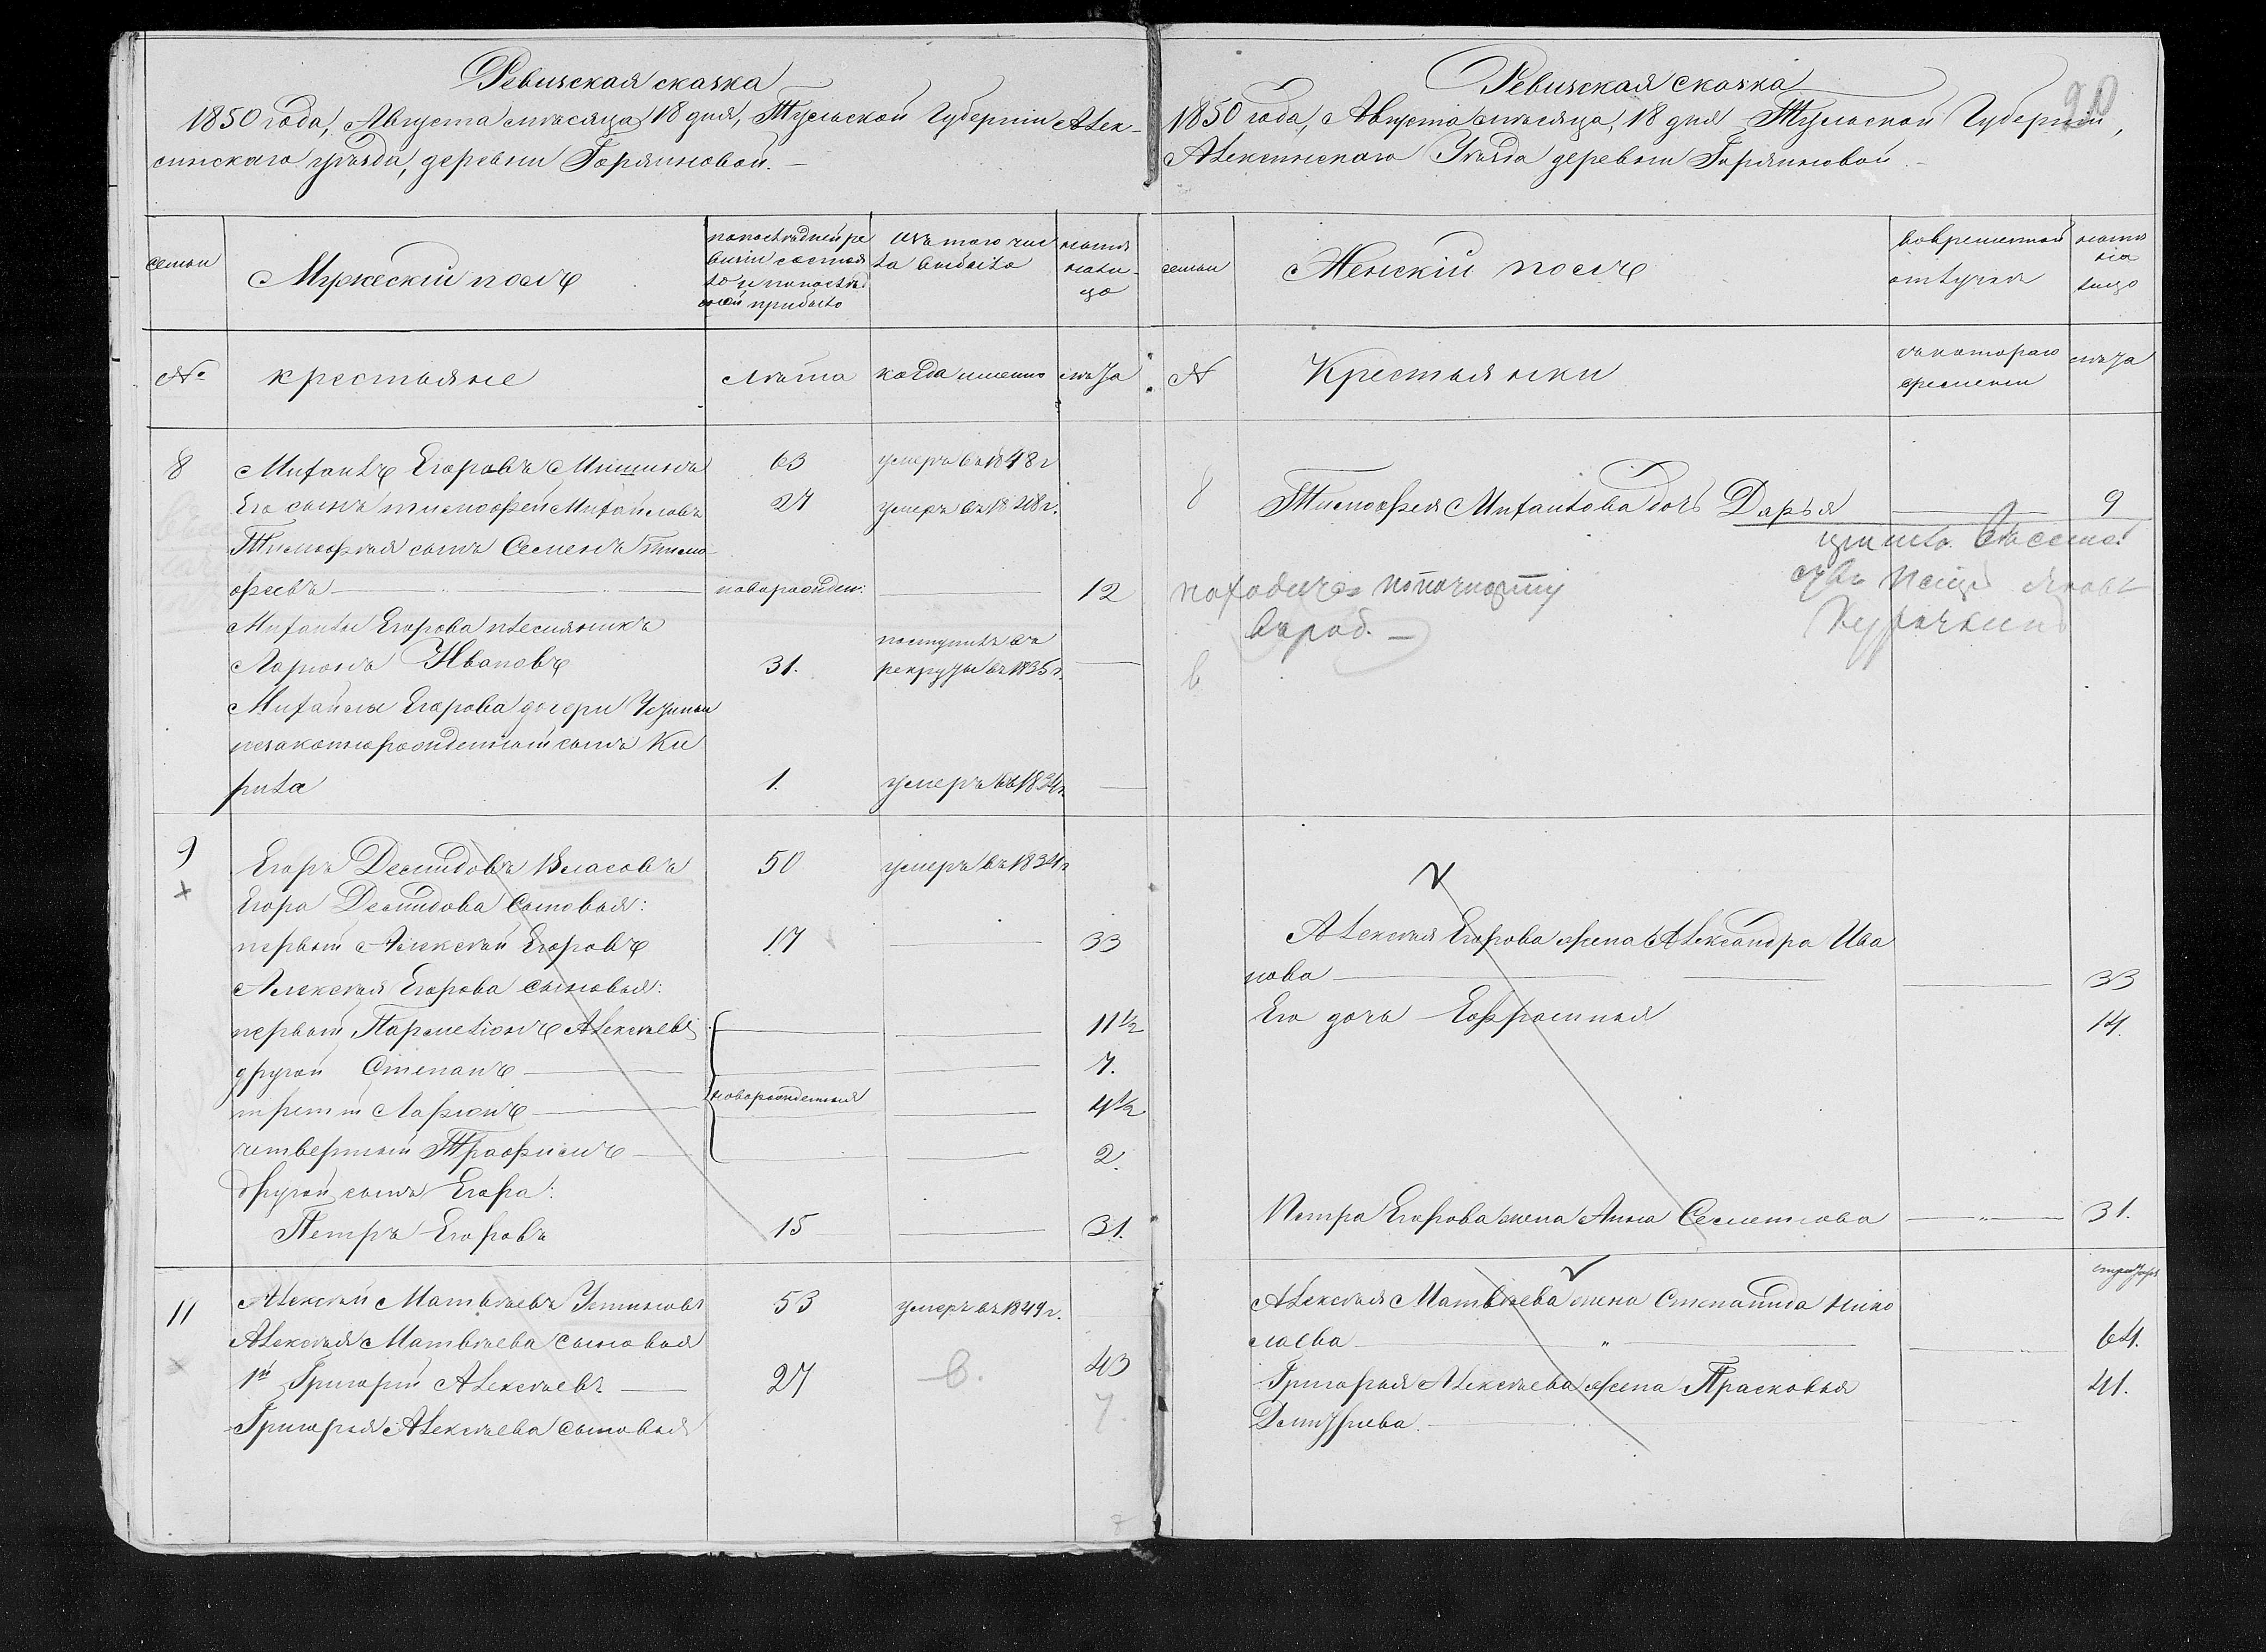 Ревизская сказка
1850 года, Августа месяца 18 дня, Тульской Губернии Алек-
синскаго уезда, деревни Горяиновой.
семьи
Мужеский полъ
по последней ре
визии состоя
ло и после
оной прибыло
изъ того чис
ла выбыло
ныне
на ли-
цо
№
крестьяне
Лета
когда именно
лета
8
Михаилъ Егоровъ Мишинъ
63
умеръ въ 1848 г
Его сынъ тимофей Михайловъ
27
умеръ въ 1848 г.
Тимофея сынъ Семенъ Тимо-
феевъ
новорожден:
12
Михаилы Егорова племянникъ
Ларионъ Ивановъ
31.
поступилъ въ
рекруты въ 1835 г.
Михайлы Егорова дочери Устиньи
незаконнорожденный сынъ Ки
рила
1.
умеръ въ 1834 г.
9
Егоръ Демидовъ Власовъ
50
умеръ въ 1834 г
Егора Демидова сыновья:
первый Алексей Егоровъ
17
33
Алексея Егорова сыновья:
первый Пармелионъ Алексеевъ
11 ½
другой Степанъ
7.
новорожденныя
третий Ларионъ
4 ½
четвертый Трофимъ
2.
другой сынъ Егора:
Петръ Егоровъ
15
31.
11
Алексей Матвеевъ Устиновъ
53
умеръ въ 1849 г.
Алексея Матвеева сыновья
1й Григорий Алексеевъ
27
в.
43
Григорья Алексеева сыновья
7.
Ревизская сказка
20
1850 года, Августа месяца, 18 дня Тульской Губернии,
Алексинскаго Уезда деревни Горяиновой
семьи
Женский полъ
во временной
отлучке
ныне
на
лицо
№
Крестьянки
съ котораго
времени
лета
8
Тимофея Михаилова дочь Дарья
9
въ род.
в
Алексея Егорова жена Александра Ива
нова
33
Его дочь Ефросинья
14.
Петра Егорова жена Анна Семенова
31.
Алексея Матвеева жена Степанида Нико
лаева
64.
Григорья Алексеева жена Прасковья
41.
Дмитриева